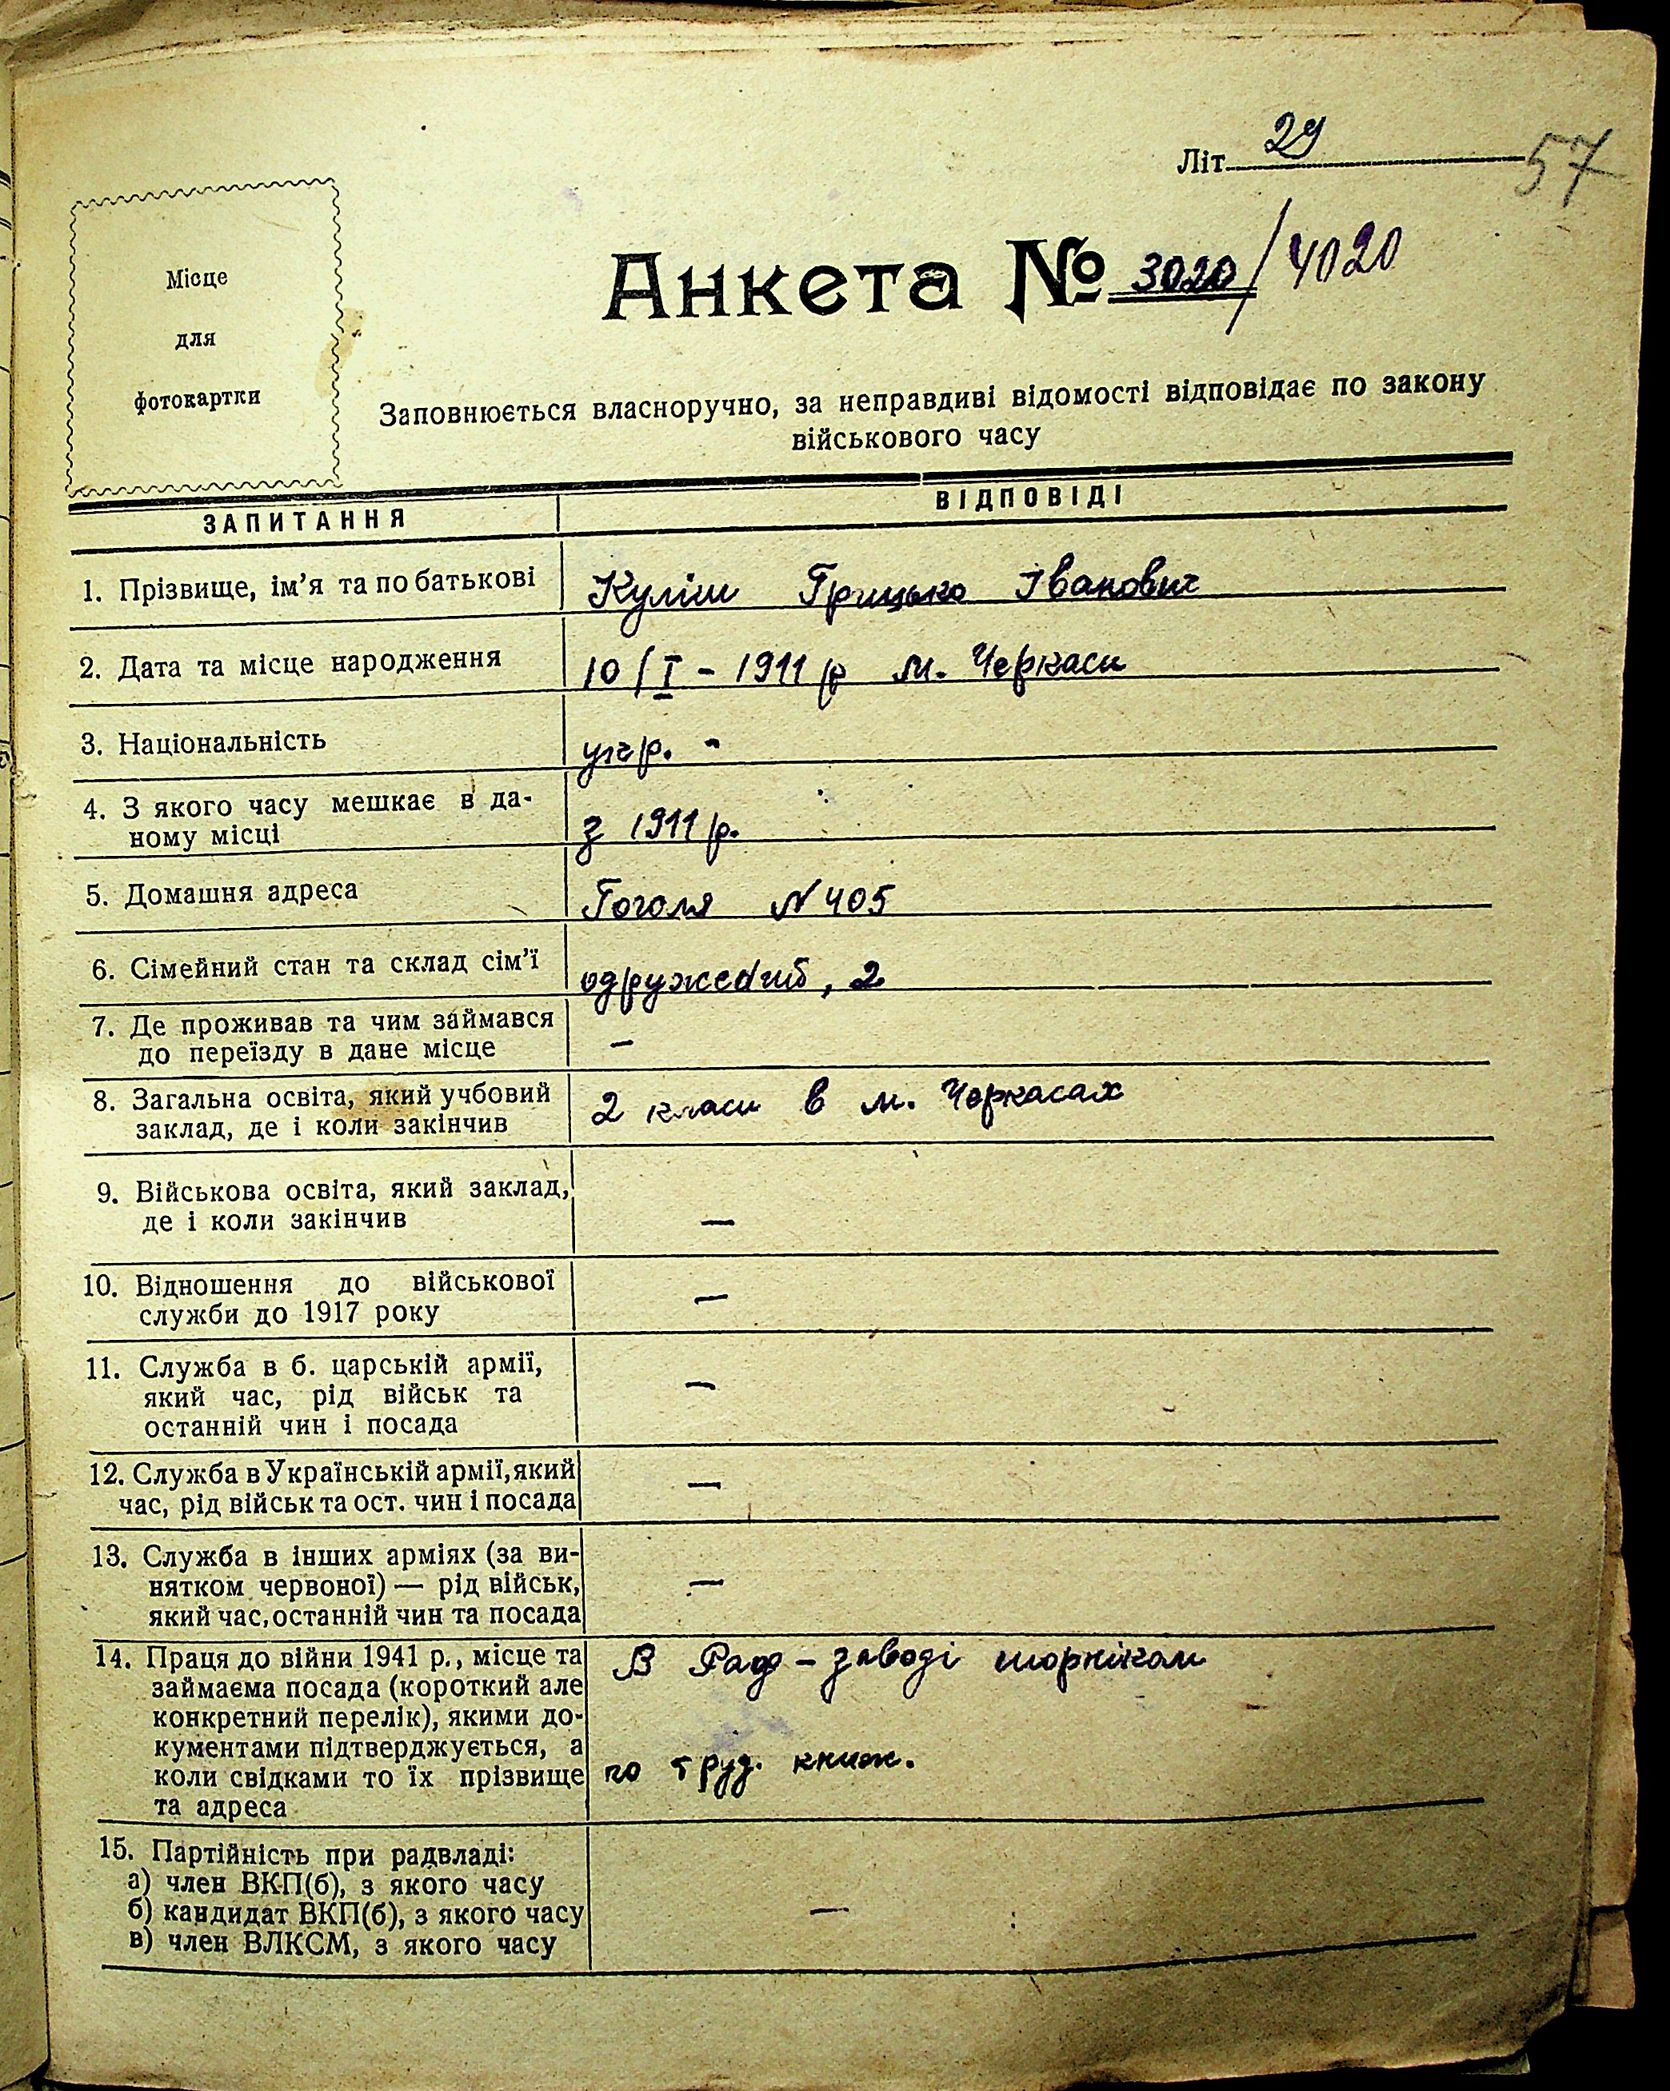 Літ 29
57
Місце
для
фотокартки
Анкета № 3020/4020
Заповнюється власноручно, за неправдиві відомості відповідає по закону
військового часу
ЗАПИТАННЯ
ВІДПОВІДІ
1. Прізвище, ім'я та по батькові
Куліш Грицько Іванович
2. Дата та місце народження
10/I - 1911 р м. Черкаси
3. Національність
укр. -
4. З якого часу мешкає в да-
ному місці
з 1911 р.
5. Домашня адреса
Гоголя № 405
6. Сімейний стан та склад сім'ї
, 2
7. Де проживав та чим займався
до переїзду в дане місце
—
8. Загальна освіта, який учбовий
заклад, де і коли закінчив
2 класи в м. Черкасах
9. Військова освіта, який заклад,
де і коли закінчив
—
10. Відношення до військової
служби до 1917 року
—
11. Служба в б. царській армії,
який час, рід військ та
останній чин і посада
—
12. Служба в Українській армії, який
час, рід військ та ост. чин і посада
—
13. Служба в інших арміях (за ви-
нятком червоної) — рід військ,
який час, останній чин та посада
—
14. Праця до війни 1941 р., місце та
займаєма посада (короткий але
конкретний перелік), якими до-
кументами підтверджується, а
коли свідками то їх прізвище
та адреса
В Раф-заводі шорніком
по труд. книж.
15. Партійність при радвладі:
а) член ВКП(б), з якого часу
б) кандидат ВКП(б), з якого часу
в) член ВЛКСМ, з якого часу
—